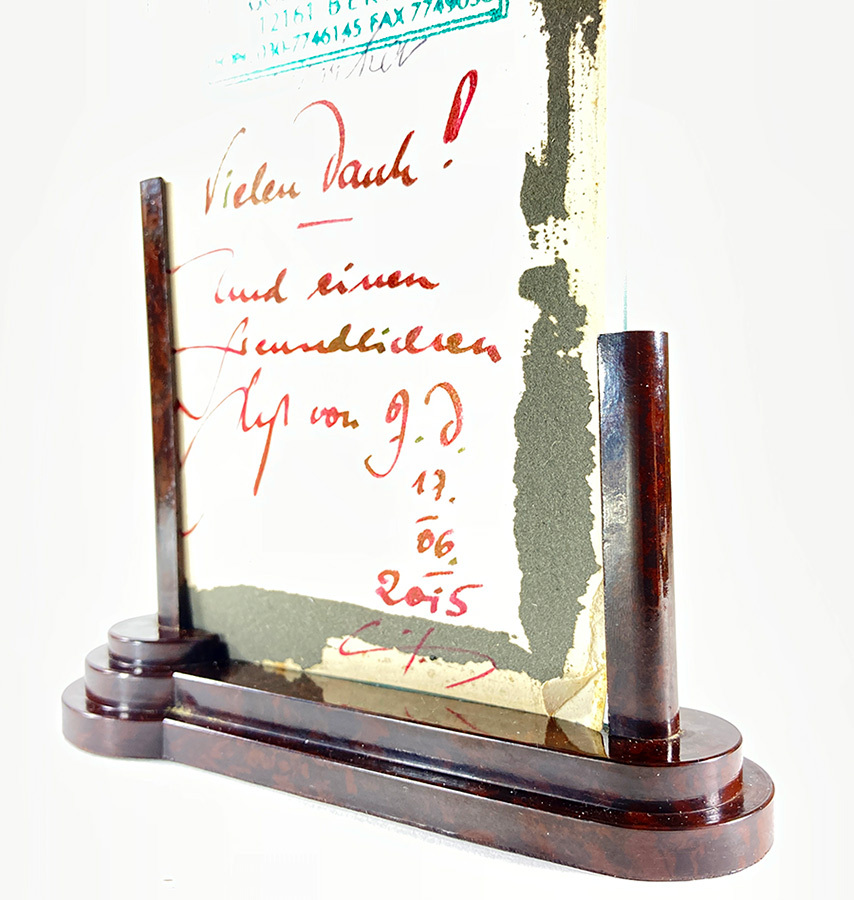 12161 BER
030-7746145 FAX 7749036
Vielen Dank!
und einen
freundlichen
Gruß von G. D.
17.
06.
2015